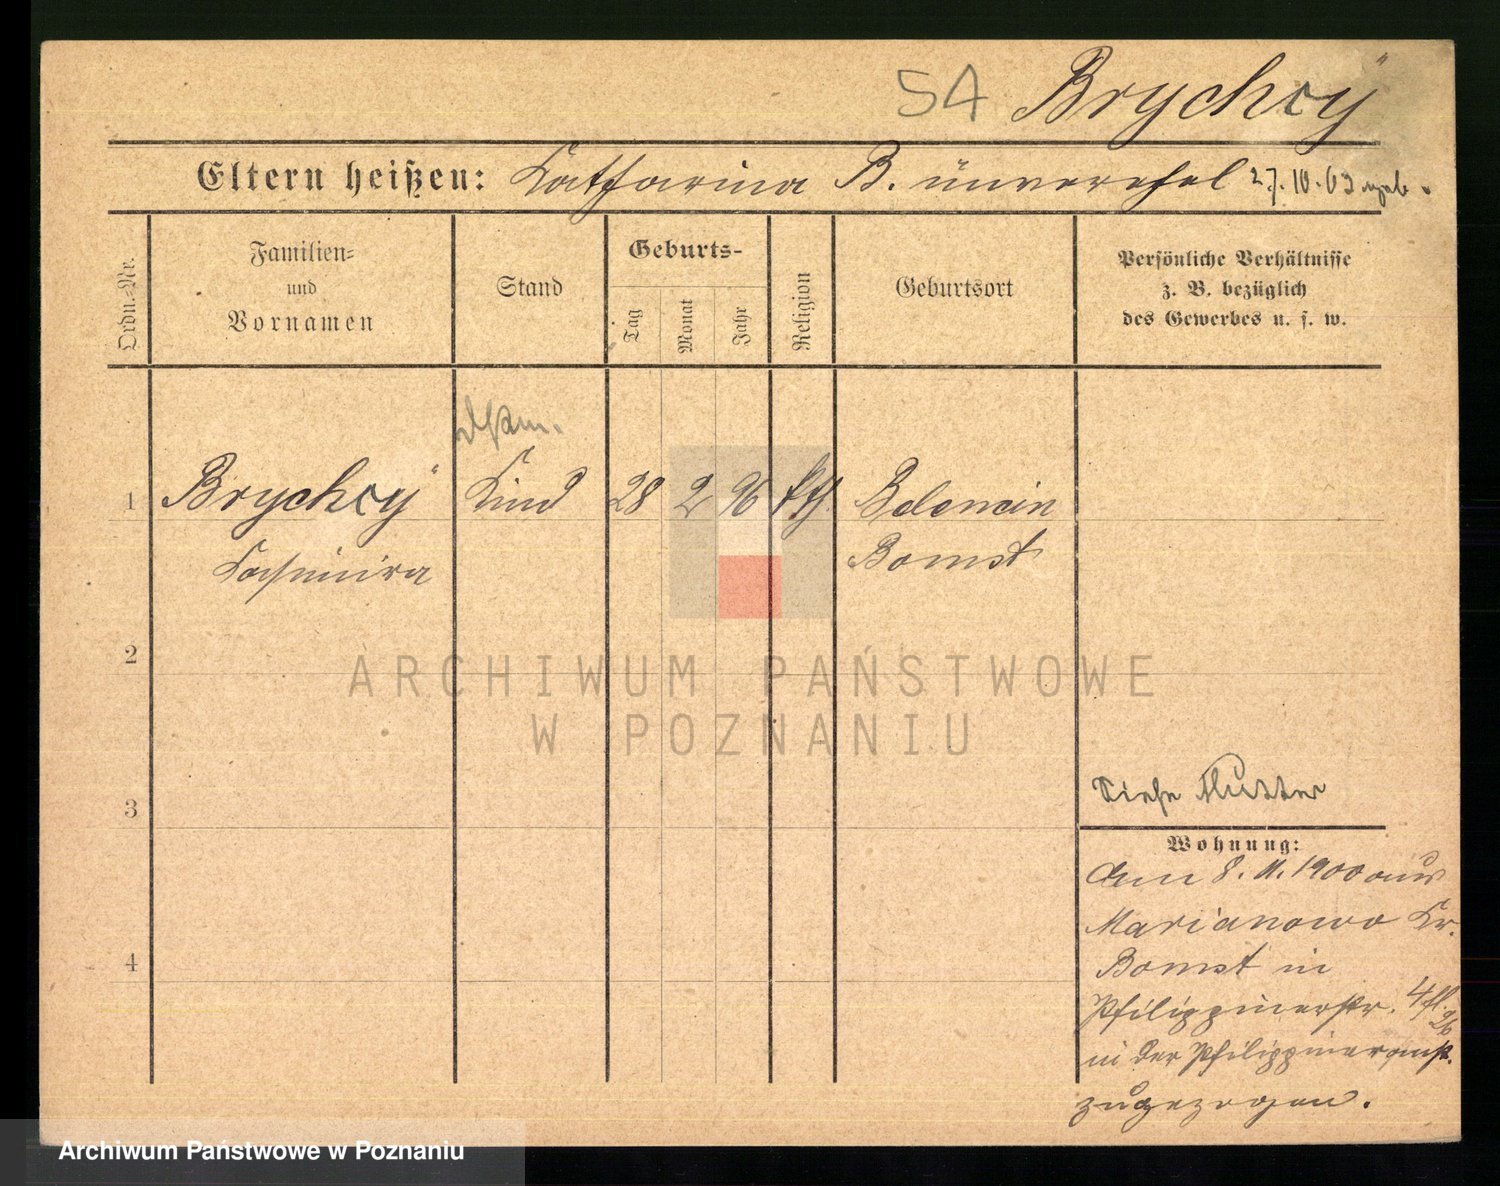 54 Brychcy
Eltern heißen: Catharina B. unverehel 27.10.63 geb.
Ordn.-Nr.
Familien-
und
Vornamen
Stand
Geburts-
Tag
Monat
Jahr
Religion
Geburtsort
Persönliche Verhältnisse
z. B. bezüglich
des Gewerbes u. s. w.
1 Brychcy Kind 28 2 96 kth. Belencin
Casimira Bomst
2
ARCHIWUM PAŃSTWOWE
W POZNANIU
Siehe Mutter
3
Wohnung:
Am 8. 11. 1900 aus
Marianowo Kr.
4 Bomst in
Philippinerstr. 4
in der Philippinerstr.
zugezogen.
Archiwum Państwowe w Poznaniu